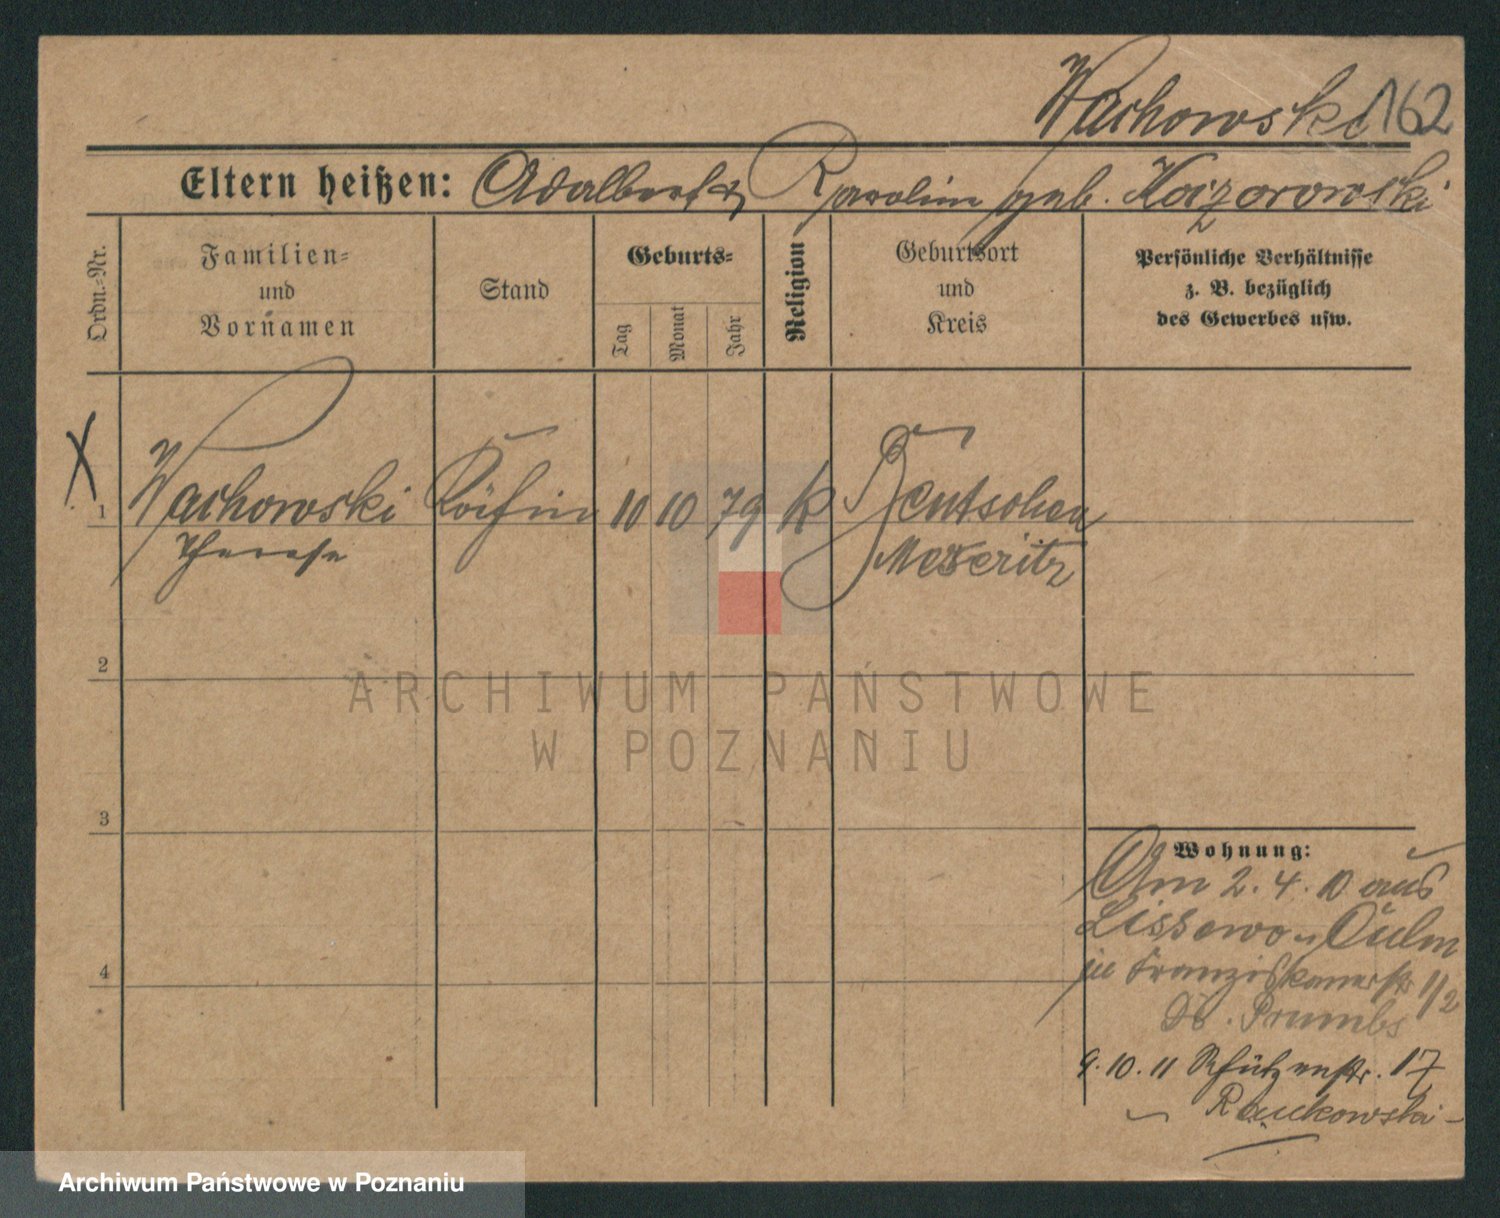 Wachowski 162
Eltern heißen: Adalbert & Karolin geb. Kaizorowski
Ordn.-Nr.
Familien-
und
Vornamen
Stand
Geburts-
Tag
Monat
Jahr
Religion
Geburtsort
und
Kreis
Persönliche Verhältnisse
z. B. bezüglich
des Gewerbes usw.
X
1 Wachowski Köchin 10 10 79 k Bentschen
Therese Meseritz
2
ARCHIWUM PAŃSTWOWE
W POZNANIU
3
Wohnung:
Am 2. 4. 10 aus
Lissewo Culm
in Franziskanerstr 1/2
Prumbs
4
9. 10. 11 Schützenstr. 17
Raukowski
Archiwum Państwowe w Poznaniu